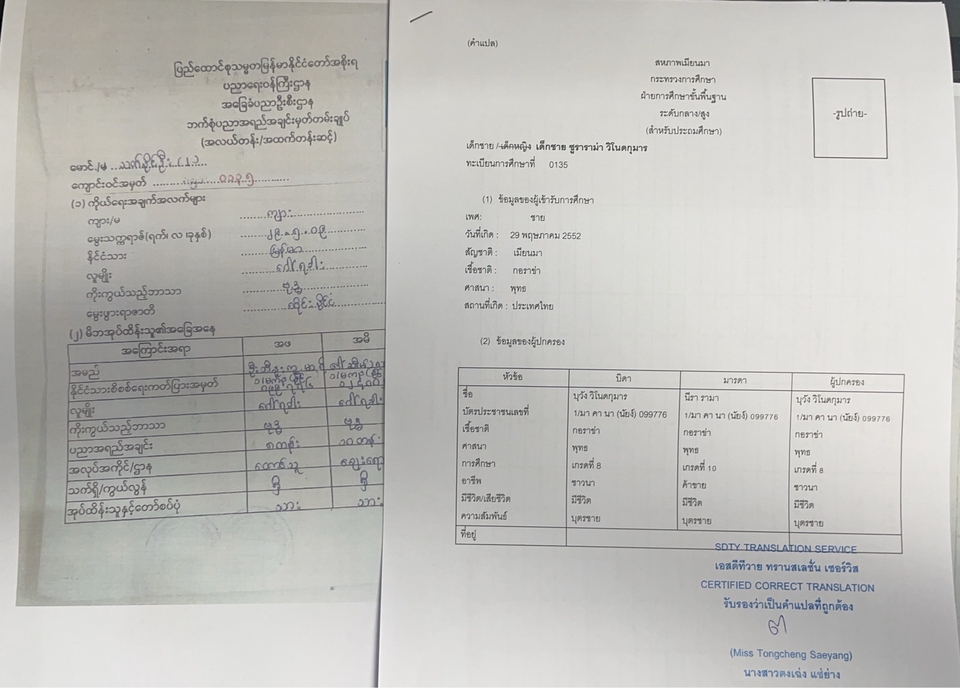 ပြည်ထောင်စုသမ္မတမြန်မာနိုင်ငံတော်အစိုးရ
ပညာရေးဝန်ကြီးဌာန
အခြေခံပညာဦးစီးဌာန
ဘက်စုံပညာအရည်အချင်းမှတ်တမ်းချုပ်
(အလယ်တန်း/အထက်တန်းဆင့်)
မောင်/မ
ကျောင်းဝင်အမှတ် ၀၁၃၅
(၁) ကိုယ်ရေးအချက်အလက်များ
ကျား/မ ကျား
မွေးသက္ကရာဇ်(ရက်၊ လ ၊ခုနှစ်) ၂၉.၅.၀၉
နိုင်ငံသား မြန်မာ
လူမျိုး ဂေါ်ရခါး
ကိုးကွယ်သည့်ဘာသာ ဗုဒ္ဓ
မွေးဖွားရာဇာတိ ထိုင်းနိုင်ငံ
(၂) မိဘအုပ်ထိန်းသူ၏အခြေအနေ
အကြောင်းအရာ အဖ အမိ
အမည်
နိုင်ငံသားစိစစ်ရေးကတ်ပြားအမှတ်
လူမျိုး ဂေါ်ရခါး ဂေါ်ရခါး
ကိုးကွယ်သည့်ဘာသာ ဗုဒ္ဓ ဗုဒ္ဓ
ပညာအရည်အချင်း ၈တန်း ၁၀တန်း
အလုပ်အကိုင်/ဌာန တောင်သူ
သက်ရှိ/ကွယ်လွန် ရှိ ရှိ
အုပ်ထိန်းသူနှင့်တော်စပ်ပုံ သား သား
(คำแปล)
สหภาพเมียนมา
กระทรวงการศึกษา
ฝ่ายการศึกษาขั้นพื้นฐาน
ระดับกลาง/สูง
(สำหรับประถมศึกษา)
-รูปถ่าย-
เด็กชาย /เด็กหญิง เด็กชาย ซูราราม่า วิโนดกุมาร
ทะเบียนการศึกษาที่ 0135
(1) ข้อมูลของผู้เข้ารับการศึกษา
เพศ: ชาย
วันที่เกิด : 29 พฤษภาคม 2552
สัญชาติ : เมียนมา
เชื้อชาติ : กอราข่า
ศาสนา : พุทธ
สถานที่เกิด : ประเทศไทย
(2) ข้อมูลของผู้ปกครอง
หัวข้อ บิดา มารดา ผู้ปกครอง
ชื่อ บุวัง วิโนดกุมาร นีรา รามา บุวัง วิโนดกุมาร
บัตรประชาชนเลขที่ 1/มา คา นา (นัยง์) 099776 1/มา คา นา (นัยง์) 099776 1/มา คา นา (นัยง์) 099776
เชื้อชาติ กอราข่า กอราข่า กอราข่า
ศาสนา พุทธ พุทธ พุทธ
การศึกษา เกรดที่ 8 เกรดที่ 10 เกรดที่ 8
อาชีพ ชาวนา ค้าขาย ชาวนา
มีชีวิต/เสียชีวิต มีชีวิต มีชีวิต มีชีวิต
ความสัมพันธ์ บุตรชาย บุตรชาย บุตรชาย
ที่อยู่
SDTY TRANSLATION SERVICE
เอสดีทีวาย ทรานสเลชั่น เซอร์วิส
CERTIFIED CORRECT TRANSLATION
รับรองว่าเป็นคำแปลที่ถูกต้อง
(Miss Tongcheng Saeyang)
นางสาวตงเฉ่ง แซ่ย่าง